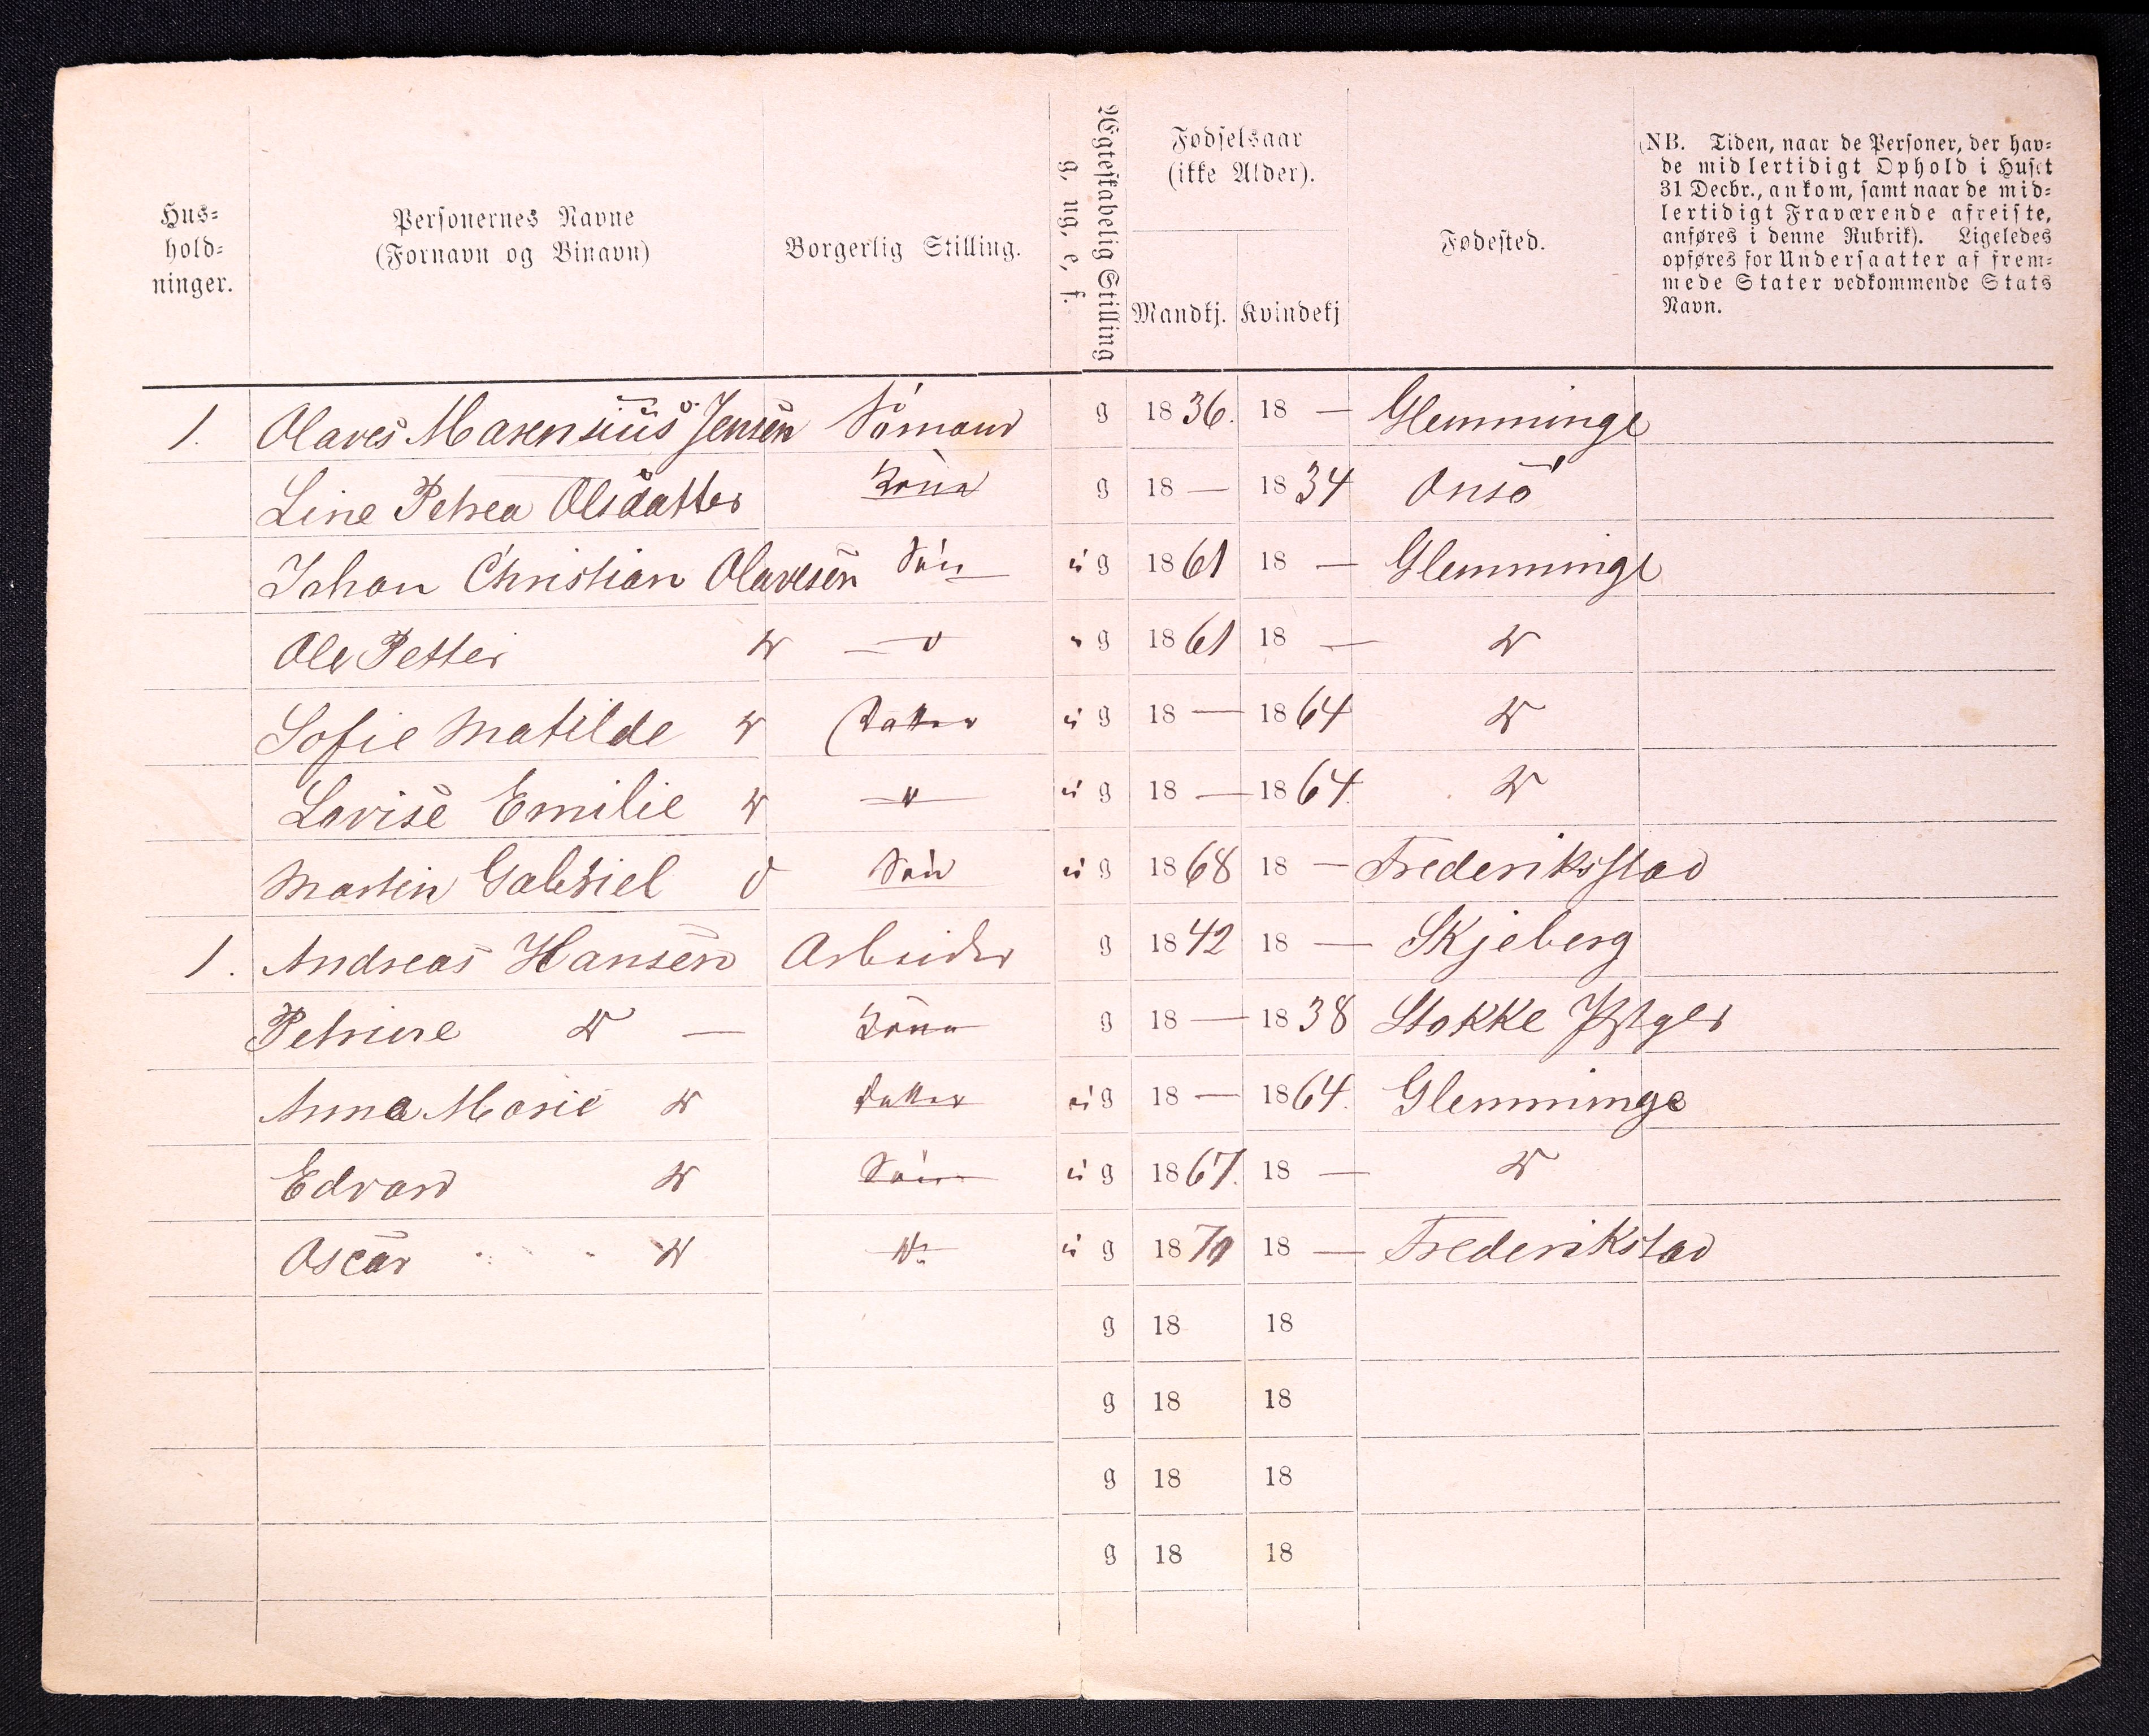 Hus-
hold-
ninger.
Personernes Navne
(Fornavn og Binavn)
Borgerlig Stilling.
Ægteskabelig Stilling
g, ug, e, f.
Fødselsaar
(ikke Alder).
Mandkj. Kvindekj
Fødested.
(NB. Tiden, naar de Personer, der hav-
de midlertidigt Ophold i Huset
31 Decbr., ankom, samt naar de mid-
lertidigt Fraværende afreiste,
anføres i denne Rubrik). Ligeledes
opføres for Undersaatter af frem-
mede Stater vedkommende Stats
Navn.
1. Olaves Marensius Jensen Sömand g 1836. 18 — Glemminge
Line Petrea Olsdatter Kone g 18 — 1834 Onsö
Johan Christian Olavesen Sön ug 1861 18 — Glemminge
Ole Petter do — " g 1861 18 — do
Sofie Matilde do Datter ug 18 — 1864 do
Lovise Emilie do — " — ug 18 — 1864. do
Martin Gabriel d Sön ug 1868 18 — Frederiksstad
1. Andreas Hansen Arbeider g 1842 18 — Skjeberg
Petrine do — Kone g 18 — 1838 Stokke Prstgld
Anna Marie do Datter ug 18 — 1864. Glemminge
Edvard do Sön ug 1867. 18 — do
Oscar do do ug 1870 18 — Frederikstad
g 18 18
g 18 18
g 18 18
g 18 18